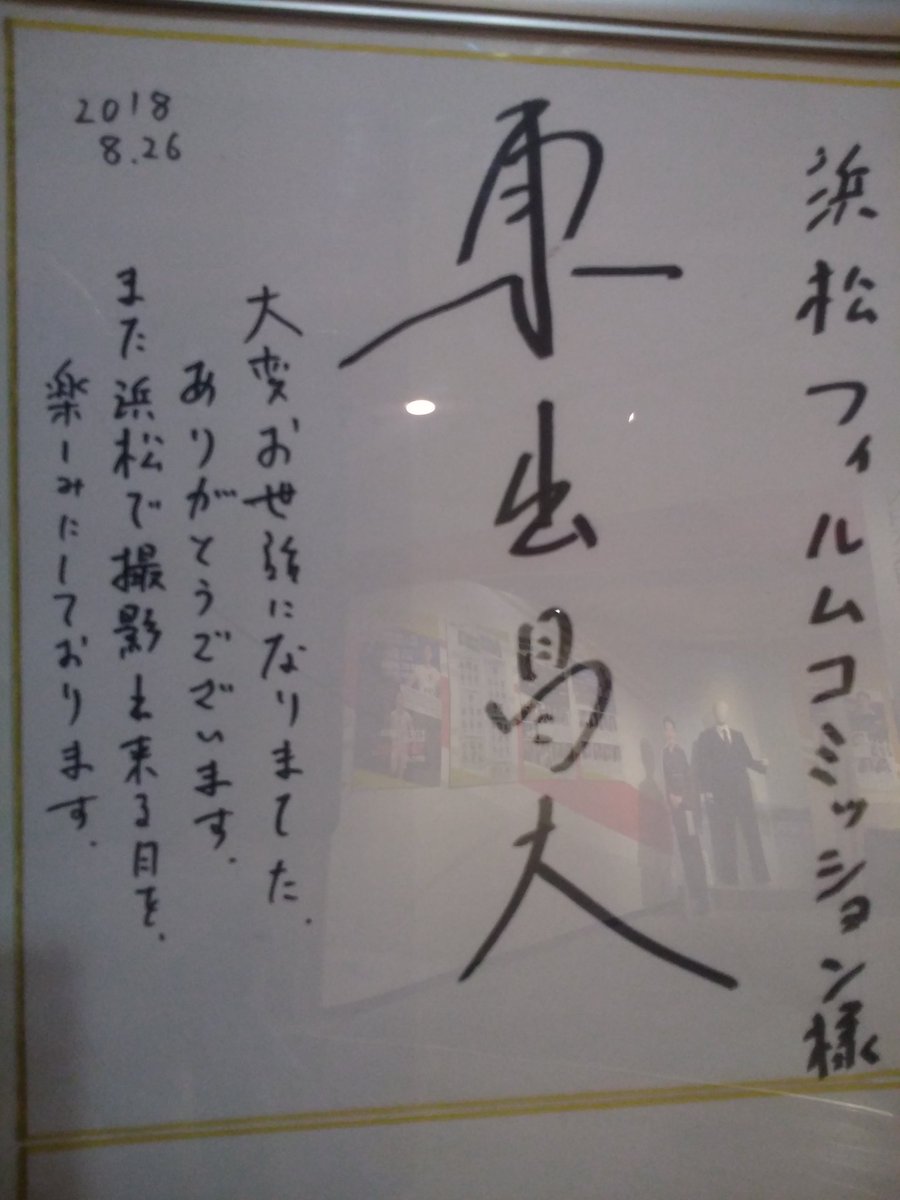 浜松フィルムコミッション様
東出昌大
大変お世話になりました.
ありがとうございます.
また浜松で撮影出来る日を.
楽しみにしております.
2018
8.26